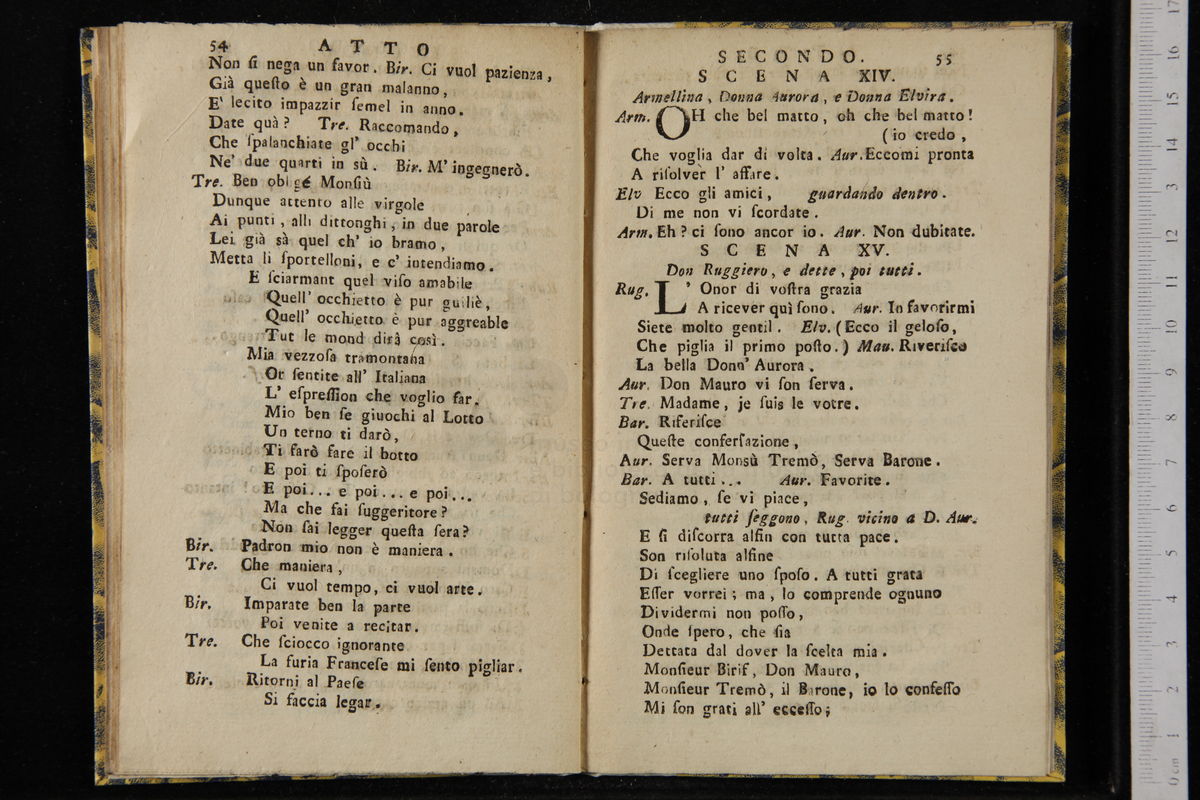 54 A T T O
Non ſi nega un favor. Bir. Ci vuol pazienza,
Già queſto è un gran malanno,
E' lecito impazzir ſemel in anno.
Date quà? Tre. Raccomando,
Che ſpalanchiate gl' occhi
Ne' due quarti in sù. Bir. M' ingegnerò.
Tre. Ben obligé Monſiù
Dunque attento alle virgole
Ai punti, alli dittonghi, in due parole
Lei già sà quel ch' io bramo,
Metta li ſportelloni, e c' intendiamo.
E ſciarmant quel viſo amabile
Quell' occhietto è pur guiliè,
Quell' occhietto è pur aggreable
Tut le mond dirà così.
Mia vezzoſa tramontana
Or ſentite all' Italiana
L' eſpreſſion che voglio far.
Mio ben ſe giuochi al Lotto
Un terno ti darò,
Ti farò fare il botto
E poi ti ſpoſerò
E poi... e poi... e poi...
Ma che fai ſuggeritore?
Non ſai legger queſta ſera?
Bir. Padron mio non è maniera.
Tre. Che maniera,
Ci vuol tempo, ci vuol arte.
Bir. Imparate ben la parte
Poi venite a recitar.
Tre. Che ſciocco ignorante
La furia Franceſe mi ſento pigliar.
Bir. Ritorni al Paeſe
Si faccia legar.
SECONDO. 55
S C E N A XIV.
Armellina, Donna Aurora, e Donna Elvira.
Arm. OH che bel matto, oh che bel matto!
(io credo,
Che voglia dar di volta. Aur. Eccomi pronta
A riſolver l' affare.
Elv Ecco gli amici, guardando dentro.
Di me non vi ſcordate.
Arm. Eh? ci ſono ancor io. Aur. Non dubitate.
S C E N A XV.
Don Ruggiero, e dette, poi tutti.
Rug. L' Onor di voſtra grazia
A ricever quì ſono. Aur. In favorirmi
Siete molto gentil. Elv. (Ecco il geloſo,
Che piglia il primo poſto.) Mau. Riveriſco
La bella Donn' Aurora.
Aur. Don Mauro vi ſon ſerva.
Tre. Madame, je ſuis le votre.
Bar. Riferiſce
Queſte conferſazione,
Aur. Serva Monsù Tremò, Serva Barone.
Bar. A tutti... Aur. Favorite.
Sediamo, ſe vi piace,
tutti ſeggono, Rug. vicino a D. Aur.
E ſi diſcorra alfin con tutta pace.
Son riſoluta alfine
Di ſcegliere uno ſpoſo. A tutti grata
Eſſer vorrei; ma, lo comprende ognuno
Dividermi non poſſo,
Onde ſpero, che ſia
Dettata dal dover la ſcelta mia.
Monſieur Birif, Don Mauro,
Monſieur Tremò, il Barone, io lo confeſſo
Mi ſon grati all' ecceſſo;
0 cm 1 2 3 4 5 6 7 8 9 10 11 12 13 14 15 16 17